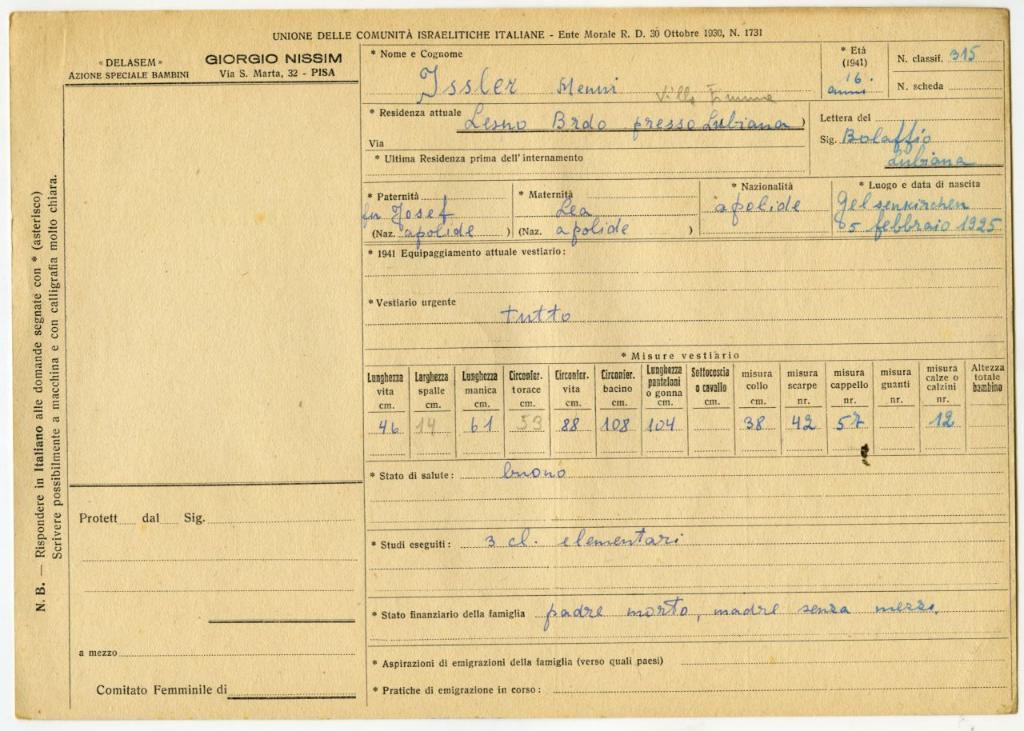 UNIONE DELLE COMUNITÀ ISRAELITICHE ITALIANE - Ente Morale R. D. 30 Ottobre 1930, N. 1731
« DELASEM »
AZIONE SPECIALE BAMBINI
GIORGIO NISSIM
Via S. Marta, 32 - PISA
* Nome e Cognome
Issler
* Età
(1941)
16
anni
N. classif. 315
N. scheda
Villa
* Residenza attuale Lesno Brdo presso Lubiana
Via
* Ultima Residenza prima dell'internamento
Lettera del
Sig. Bolaffio
Lubiana
* Paternità
fu Josef
(Naz. apolide )
* Maternità
Lea
(Naz. apolide )
* Nazionalità
apolide
* Luogo e data di nascita
Gelsenkirchen
5 febbraio 1925
* 1941 Equipaggiamento attuale vestiario:
* Vestiario urgente
tutto
* Misure vestiario
Lunghezza vita cm. 46
Larghezza spalle cm. 14
Lunghezza manica cm. 61
Circonfer. torace cm. 53
Circonfer. vita cm. 88
Circonfer. bacino cm. 108
Lunghezza pantaloni o gonna cm. 104
Sottocoscia o cavallo cm.
misura collo cm. 38
misura scarpe nr. 42
misura cappello nr. 57
misura guanti nr.
misura calze o calzini nr. 12
Altezza totale bambino
* Stato di salute: buono
* Studi eseguiti: 3 cl. elementari
* Stato finanziario della famiglia padre morto, madre senza mezzi.
* Aspirazioni di emigrazioni della famiglia (verso quali paesi)
* Pratiche di emigrazione in corso:
Protett dal Sig.
a mezzo
Comitato Femminile di
N. B. — Rispondere in Italiano alle domande segnate con * (asterisco)
Scrivere possibilmente a macchina e con calligrafia molto chiara.